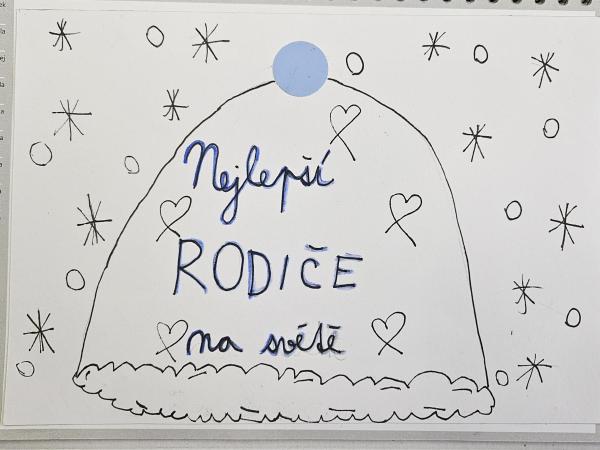 Nejlepší
RODIČE
na světě